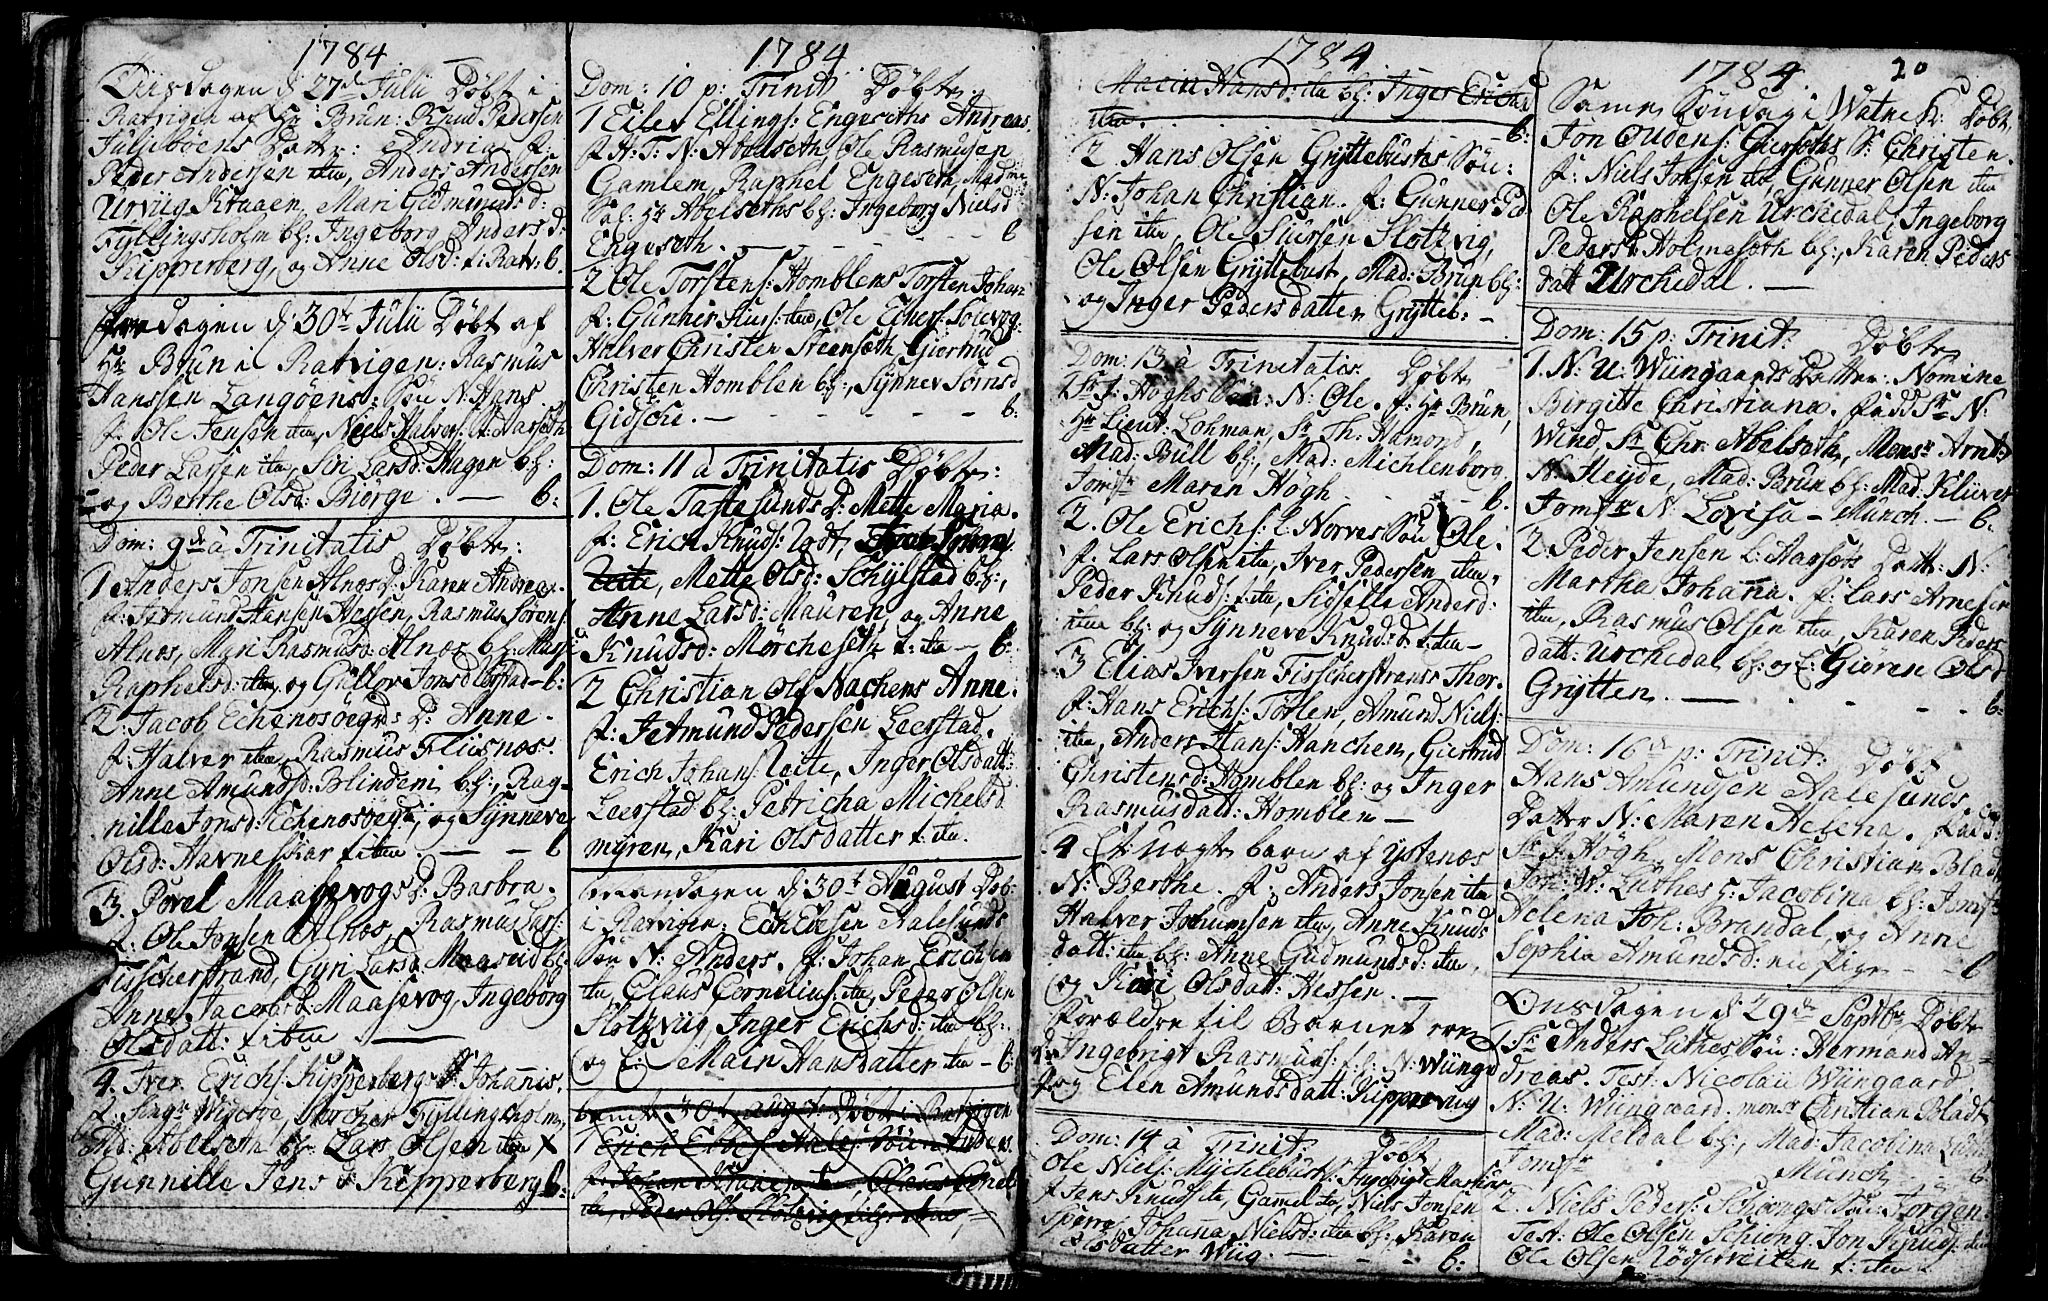 1784.
Tiisdagen d 27de Julii Døbt i
Ratvigen af Hr Brun: Knud Pedersen
Julsebøens Datter: Andria f:
Peder Andersen itu, Anders Andersen
Urviig Kraaen, Mari Gudmunds d:
Fyllingsholm bf: Ingeborg Anders d:
Kipperberg, og Anne Olsd: f: Ratv: b.
Fredagen d 30te Julii Døbt af
Hr Brun i Ratvigen: Rasmus
Hanssen Langøens: Søn N: Hans.
f: Ole Jensen itu, Niels Halvers: f: Harseth
Peder Larsen itu, Siri Larsd: Hagen bf:
og Berthe Olsd: Biørge. — b:
Dom: 9de à Trinitatis Døbte:
1 Anders Jonsen Alnæs D: Karen Andrea.
f: Jetmund Hansen Hessen, Rasmus Sørens:
Alnæs, Mari Rasmusd: Alnæs bf: Marte
Raphelsd: itu, og Gullov Jonsd: Løfstad — b:
2. Jacob Echenosøegs: D: Anne.
f: Halver itu, Rasmus Fliisnæs.
Anne Amundsd: Blindem bf:, Rag-
nilla Jonsd: Echenosøeg, og Synneve
Olsd: Havneskar f: itu. — — b
3. Povel Maasevogs D: Barbra.
f: Ole Jonsen Alnæs, Rasmus Lars:
Fisscherstrand, Gyri Larsd: Maaseid bf:
Anne Jacobsd: Maasevog, Ingeborg
Olsdatt: f: itu. —
4. Iver Erichs: Kipperbergs S: Johannis.
f: Hr Abelseth bf: Lars Olsen itu X
Gunnille Jens d: Kipperberg b:
1784.
Dom: 10 p: Trinit: Døbte:
1 Eiler Ellings: Engeseths Andreas.
f: H: T: N: Abelseth, Ole Rasmusen
Gamlem, Raphel Engeseth, Madme
Sal: Hr Abelseths bf: Ingeborg Nielsd
Engeseth. — — — — b
2 Ole Torstens: Homblens Torsten Johan
f: Gunner itu, Ole Echers: Solevog:
Halver Christen Steenseth, Giertrud
Christen Homblen bf:, Synnev Jørnsd
Gidsche. — — — — b:
Dom: 11 à Trinitatis Døbte:
1. Ole Taftesunds D: Mette Maria.
f: Erich Knuds: Todt,
Leite, Mette Olsd: Schylstad bf:,
Anne Larsd: Mauren, og Anne
Knudsd: Mørcheseth f: itu — b:
2 Christian Ols: Nachens Anne.
f: Jetmund Pedersen Leerstad,
Erich Johans: Leite, Inger Olsdatt:
Leerstad bf: Petricha Michelsd
myren, Kari Olsdatter f: itu.
Maandagen d 30te August Døb:
i Ratvigen: Erich Ericsen Aalesunds
Søn N: Anders. f: Johan Erichsen
itu, Claus Cornelius: itu, Peder Olsen
Slotzviig, Inger Erichsd: itu bf:
og f: Maren Hansdatter itu — b:
1 Erich Erics: Aales: Søn Anders
f: Johan itu, Claus Cornel
itu, Peder Ols: Slotzviig,
1784
Maren Hansd: itu bf: Inger Erichsd
itu. — b:
2 Hans Olsen Gryttebustes Søn:
N: Johan Christian. f: Gunner Pe-
sen itu, Ole Siursen Slotzvig,
Ole Olsen Gryttebust, Mad: Brun bf:
og Inger Pedersdatter Grytteb: —
Dom: 13 à Trinitatis. Døbte
1 Sr J: Høghs Søn: N: Ole. f: Hr Brun,
Hr Lieut: Lohman, Sr Th: Hamond,
Mad: Bull bf:, Mad: Michlenborg,
Jomfr Maren Høgh. — — b.
2. Ole Erichs: l: Norves Søn Ole.
f: Lars Olsen itu, Iver Pedersen itu,
Peder Knuds: f: itu, Sidselle Anderd:
itu bf: og Synneve Knudsd: f: itu —
3 Elias Iversen Fisscherstrans Thor.
f: Hans Erichs: Toflen, Amund Niels:
itu, Anders Hans: Hanchen, Giertrud
Christensd: Homblen bf: og Inger
Rasmusdatt: Homblen —
4 Et uægte barn af Ystenæs
N: Berthe. f: Anders Jonsen itu
Halver Johansen itu, Anne Knuds
datt: itu bf: Anne Gudmundsd: itu,
og Kari Olsdatt: Hessen. —
Forældre til Barnet ere
Ingebrigt Rasmus: f: N: Wiingd
og Elen Amundsdatt: Kippervig
Dom: 14 à Trinit: Døbt
Ole Niels: Mychlebust S: Ingebrigt Markus
f: Jens Knuds itu, Gamel itu, Niels Jonsen
Sperre, Johanna Nielsd: itu bf: Karen
Olsdatter Wiig. — — b:
1784. 20
Same Søndag i Watne K: Døbt
Jon Oudens: Giersæths S: Christen.
f: Niels Jonsen itu, Gunner Olsen itu
Ole Raphelsen Urchedal, Ingeborg
Pedersd: Holmesæth bf:, Karen Peders
datt Urchedal. —
Dom: 15 p: Trinit: Døbte
1. N: U: Wiingaards Datter: Nomine
Birgitte Christiana. fadd Sr N:
Wind, Sr Chr: Abelseth, Monsr Arnt
N: Heyde, Mad: Brun bf: Mad: Klüver
Jomfr N: Lovisa — Munch. — b.
2 Peder Jensen l: Aarsæts Datt: N:
Martha Johanna. f: Lars Arnesen
itu, Rasmus Olsen itu, Karen Peders
datt: Urchedal bf: og f: Giøren Olsd
Grytten. — — b:
Dom: 16de p: Trinit: Døbt
Hans Amundsen Aalesunds
Datter N: Maren Helena. f:
Sr J: Høgh, Mons Christian Bladt
Joh: W: Luthes H: Jacobina bf: Jomfr
Helena Joh: Brandal, og Anne
Sophia Amundsd: en pige — b
Onsdagen d 29de Septbr Døbt
1 Sr Anders Luthes Søn: Hermand An-
dreas. Test: Nicolaii Wiingaard
N: U: Wiingaard. monsr Christian Bladt
Mad: Meldal bf:, Mad: Jacobina Luthes
Jomfr Munch — b.
2. Niels Peders: Schongs Søn: Jørgen:
Test: Ole Olsen Schiong, Jon Knuds: itu
Ole Olsen Rødsetreiten f: itu